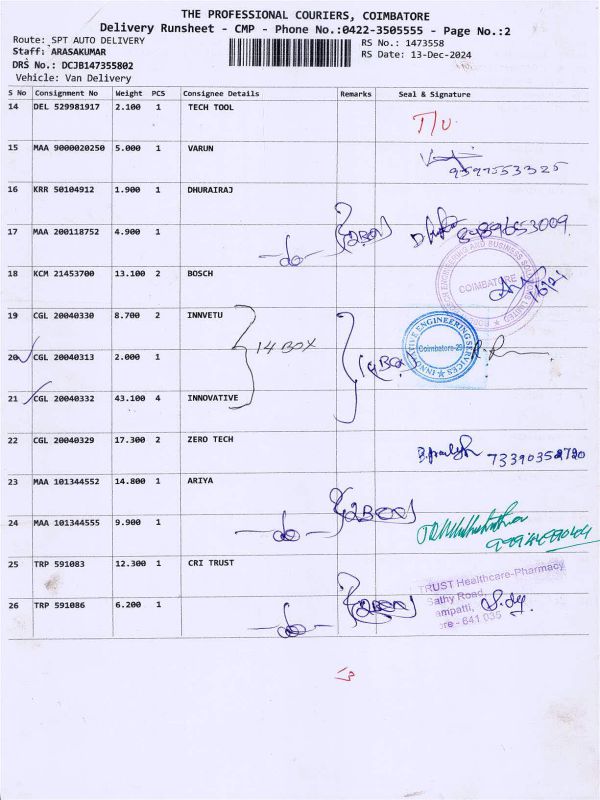 THE PROFESSIONAL COURIERS, COIMBATORE
Delivery Runsheet - CMP - Phone No.:0422-3505555 - Page No.:2
Route: SPT AUTO DELIVERY RS No.: 1473558
Staff: ARASAKUMAR RS Date: 13-Dec-2024
DRS No.: DCJB147355802
Vehicle: Van Delivery
S No Consignment No Weight PCS Consignee Details Remarks Seal & Signature
14 DEL 529981917 2.100 1 TECH TOOL
T/U
15 MAA 9000020250 5.000 1 VARUN
16 KRR 50104912 1.900 1 DHURAIRAJ
17 MAA 200118752 4.900 1 -do- 2BOX
18 KCM 21453700 13.100 2 BOSCH
COIMBATORE
19 CGL 20040330 8.700 2 INNVETU
20 CGL 20040313 2.000 1 14 BOX
INNOVATIVE ENGINEERING SERVICES
Coimbatore-29
21 CGL 20040332 43.100 4 INNOVATIVE
22 CGL 20040329 17.300 2 ZERO TECH
23 MAA 101344552 14.800 1 ARIYA
24 MAA 101344555 9.900 1 -do- 2BOX
25 TRP 591083 12.300 1 CRI TRUST
TRUST Healthcare-Pharmacy
Sathy Road,
26 TRP 591086 6.200 1 -do- 2BOX
ampatti,
ore - 641 035
13